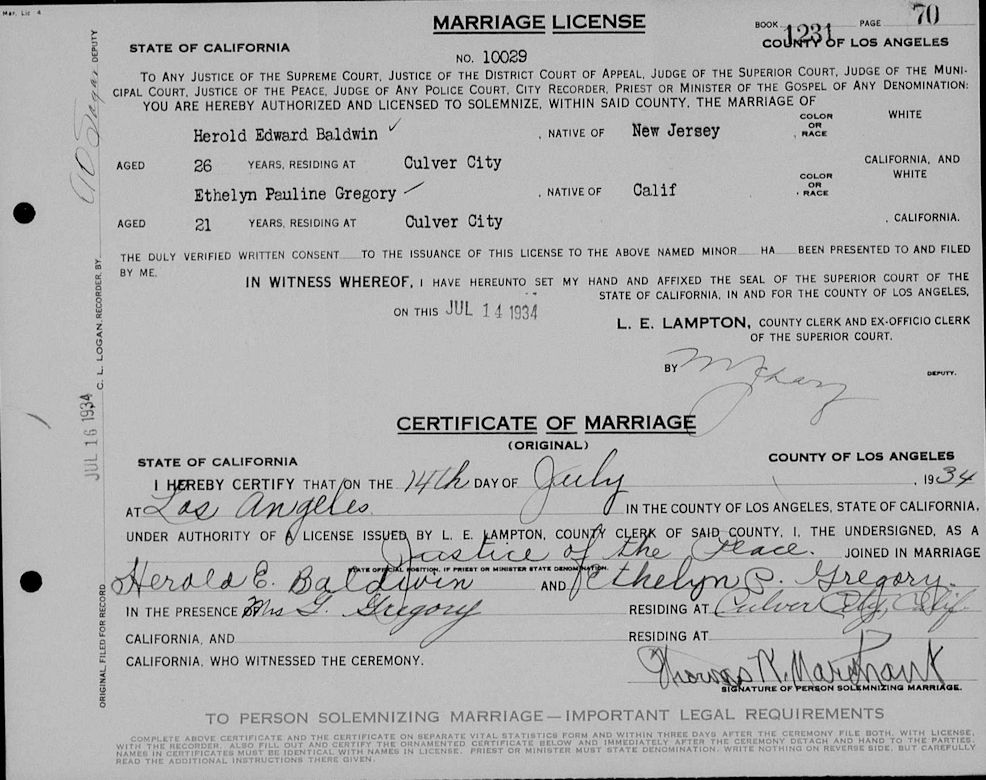 Mar. Lic 4
MARRIAGE LICENSE
BOOK 1231 PAGE 70
STATE OF CALIFORNIA
COUNTY OF LOS ANGELES
NO. 10029
TO ANY JUSTICE OF THE SUPREME COURT, JUSTICE OF THE DISTRICT COURT OF APPEAL, JUDGE OF THE SUPERIOR COURT, JUDGE OF THE MUNI-
CIPAL COURT, JUSTICE OF THE PEACE, JUDGE OF ANY POLICE COURT, CITY RECORDER, PRIEST OR MINISTER OF THE GOSPEL OF ANY DENOMINATION:
YOU ARE HEREBY AUTHORIZED AND LICENSED TO SOLEMNIZE, WITHIN SAID COUNTY, THE MARRIAGE OF
Herold Edward Baldwin ✓ , NATIVE OF New Jersey , COLOR OR RACE WHITE
AGED 26 YEARS, RESIDING AT Culver City CALIFORNIA, AND
Ethelyn Pauline Gregory , NATIVE OF Calif , COLOR OR RACE WHITE
AGED 21 YEARS, RESIDING AT Culver City , CALIFORNIA.
THE DULY VERIFIED WRITTEN CONSENT TO THE ISSUANCE OF THIS LICENSE TO THE ABOVE NAMED MINOR HA BEEN PRESENTED TO AND FILED
BY ME.
IN WITNESS WHEREOF, I HAVE HEREUNTO SET MY HAND AND AFFIXED THE SEAL OF THE SUPERIOR COURT OF THE
STATE OF CALIFORNIA, IN AND FOR THE COUNTY OF LOS ANGELES,
ON THIS JUL 14 1934
L. E. LAMPTON, COUNTY CLERK AND EX-OFFICIO CLERK
OF THE SUPERIOR COURT.
BY DEPUTY.
CERTIFICATE OF MARRIAGE
(ORIGINAL)
STATE OF CALIFORNIA
COUNTY OF LOS ANGELES
I HEREBY CERTIFY THAT ON THE 14th DAY OF July , 1934
AT Los Angeles IN THE COUNTY OF LOS ANGELES, STATE OF CALIFORNIA,
UNDER AUTHORITY OF A LICENSE ISSUED BY L. E. LAMPTON, COUNTY CLERK OF SAID COUNTY, I, THE UNDERSIGNED, AS A
Justice of the Peace. JOINED IN MARRIAGE
STATE OFFICIAL POSITION, IF PRIEST OR MINISTER STATE DENOMINATION.
Herold E. Baldwin AND Ethelyn P. Gregory.
IN THE PRESENCE Mrs G. Gregory RESIDING AT Culver City, Calif.
CALIFORNIA, AND RESIDING AT
CALIFORNIA, WHO WITNESSED THE CEREMONY.
Thomas K. Marchant
SIGNATURE OF PERSON SOLEMNIZING MARRIAGE.
TO PERSON SOLEMNIZING MARRIAGE—IMPORTANT LEGAL REQUIREMENTS
COMPLETE ABOVE CERTIFICATE AND THE CERTIFICATE ON SEPARATE VITAL STATISTICS FORM AND WITHIN THREE DAYS AFTER THE CEREMONY FILE BOTH, WITH LICENSE,
WITH THE RECORDER. ALSO FILL OUT AND CERTIFY THE ORNAMENTED CERTIFICATE BELOW AND IMMEDIATELY AFTER THE CEREMONY DETACH AND HAND TO THE PARTIES.
NAMES IN CERTIFICATES MUST BE IDENTICAL WITH NAMES IN LICENSE. PRIEST OR MINISTER MUST STATE DENOMINATION. WRITE NOTHING ON REVERSE SIDE, BUT CAREFULLY
READ THE ADDITIONAL INSTRUCTIONS THERE GIVEN.
ORIGINAL, FILED FOR RECORD JUL 16 1934 C. L. LOGAN, RECORDER, BY DEPUTY